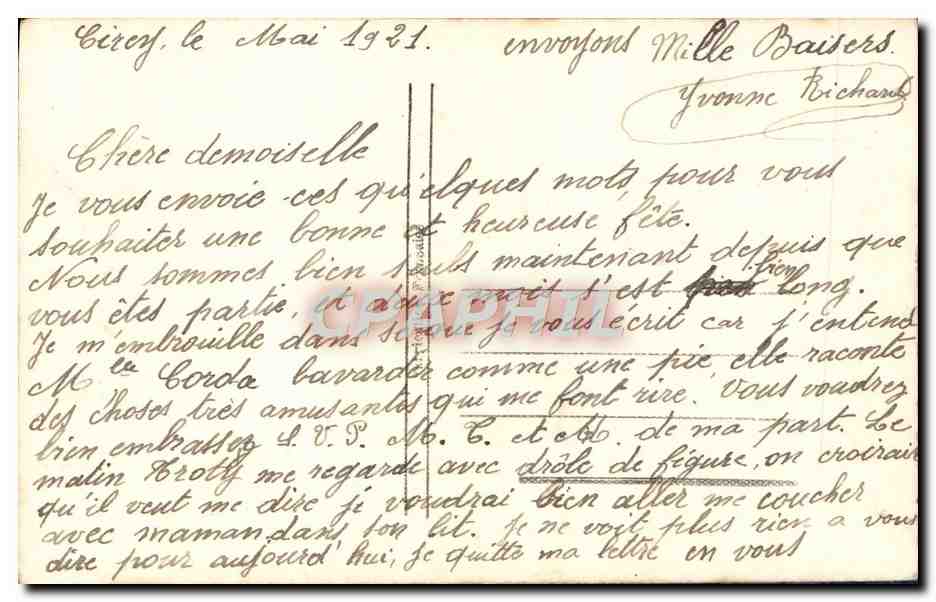 Cirey, le Mai 1921.
envoyons Mille Baisers.
Yvonne Richard
Chère demoiselle
Je vous envoie ces qu'elques mots, pour vous
souhaiter une bonne et heureuse fête.
Nous sommes bien seubs maintenant depuis que
vous êtes partie, et deux mois s'est bien long.
Je m'embrouille dans se que je vous écrit car j'entend
Mlle Corda bavarder comme une pie, elle raconte
des choses très amusantes qui me font rire. Vous voudrez
bien embrassez S.V.P. M. C. et M. de ma part. Le
matin me regarde avec drôle de figure, on croirair
qu'il veut me dire je voudrai bien aller me coucher
avec maman dans son lit. Je ne voit plus rien a vous
dire pour aujourd'hui, Je quitte ma lettre en vous
CPARAMA